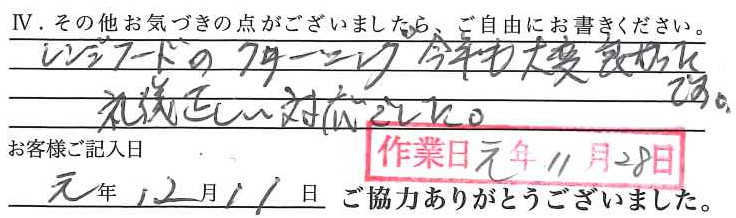 Ⅳ．その他お気づきの点がございましたら、ご自由にお書きください。
レンジフードのクリーニング今年も大変良かった
です。
礼儀正しい対応でした。
お客様ご記入日
作業日元年11月28日
元年12月11日 ご協力ありがとうございました。